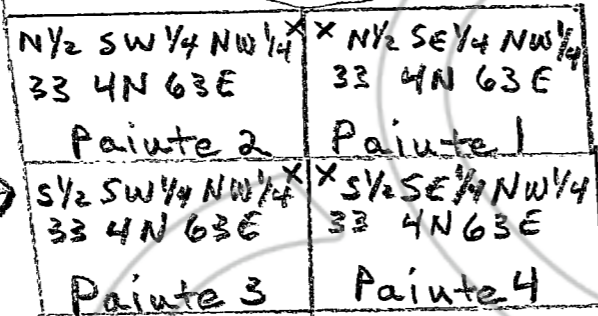 N½ SW ¼ NW ¼ X
33 4N 63E
Paiute 2
X N½ SE¼ NW¼
33 4N 63E
Paiute 1
S½ SW¼ NW¼ X
33 4N 63E
Paiute 3
X S½ SE¼ NW¼
33 4N 63E
Paiute 4